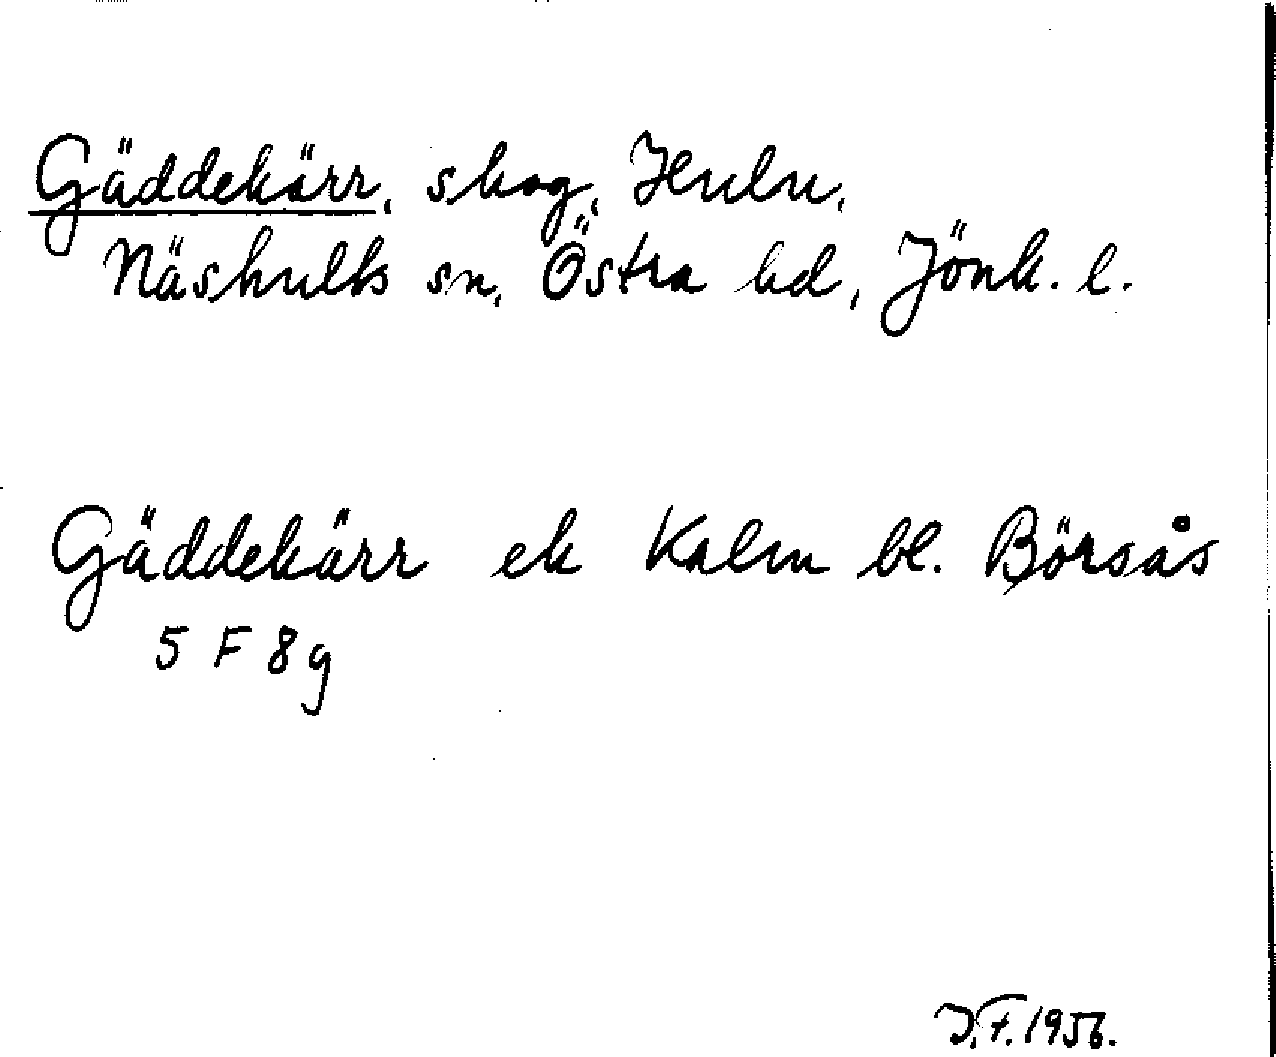 Gäddekärr, skog, Hulu,
Näshults sn, Östra hd, Jönk. l.
Gäddekärr ek Kalm bl. Börsås
5 F 8 g
J.F. 1956.